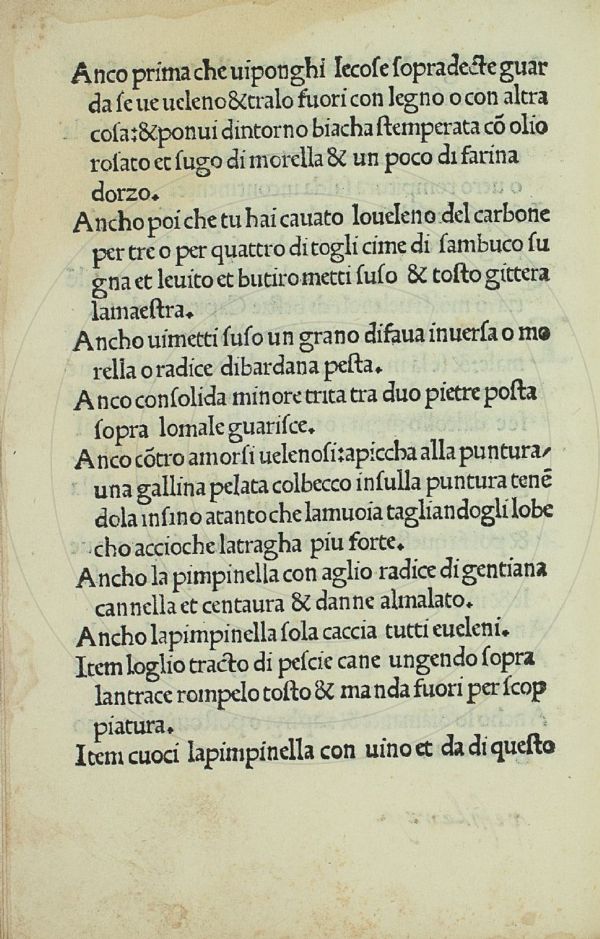 Anco prima che uiponghi lecoſe ſopradecte guar
da ſe ue ueleno & tralo fuori con legno o con altra
coſa: & ponui dintorno biacha ſtemperata cō olio
roſato et ſugo di morella & un poco di farina
dorzo.
Ancho poi che tu hai cauato loueleno del carbone
per tre o per quattro di togli cime di ſambuco ſu
gna et leuito et butiro metti ſuſo & toſto gittera
lamaeſtra.
Ancho uimetti ſuſo un grano difaua inuerſa o mo
rella o radice dibardana peſta.
Anco conſolida minore trita tra duo pietre poſta
ſopra lomale guariſce.
Anco cōtro amorſi uelenoſi: apiccha alla puntura/
una gallina pelata colbecco inſulla puntura tenē
dola inſino atanto che lamuoia tagliandogli lobe
cho accioche latragha piu forte.
Ancho la pimpinella con aglio radice di gentiana
cannella et centaura & danne almalato.
Ancho lapimpinella ſola caccia tutti eueleni.
Item loglio tracto di peſcie cane ungendo ſopra
lantrace rompelo toſto & manda fuori per ſcop
piatura.
Item cuoci lapimpinella con uino et da di queſto